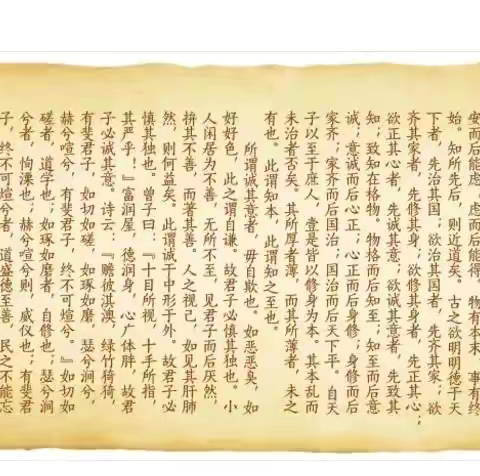 变而后能虑,虑而后能得。物有本末,事有终
始。知所先后,则近道矣。古之欲明明德于天
下者,先治其国;欲治其国者,先齐其家;欲
齐其家者,先修其身;欲修其身者,先正其心;
欲正其心者,先诚其意;欲诚其意者,先致其
知;致知在格物。物格而后知至;知至而后意
诚;意诚而后心正;心正而后身修;身修而后
家齐;家齐而后国治;国治而后天下平。自天
子以至于庶人,壹是皆以修身为本。其本乱而
未治者否矣。其所厚者薄,而其所薄者,未之
有也。此谓知本,此谓知之至也。
所谓诚其意者,毋自欺也。如恶恶臭,如
好好色,此之谓自谦。故君子必慎其独也。小
人闲居为不善,无所不至,见君子而后厌然,
拚其不善,而著其善。人之视己,如见其肝肺
然,则何益矣。此谓诚于中形于外。故君子必
慎其独也。曾子曰:『十目所视,十手所指,
其严乎!』富润屋,德润身,心广体胖,故君
子必诚其意。诗云:『瞻彼淇澳,绿竹猗猗,
有斐君子,如切如磋,如琢如磨,瑟兮涧兮,
赫兮喧兮,有斐君子,终不可煊兮。』如切如
磋者,道学也;如琢如磨者,自修也;瑟兮涧
兮者,恂溧也;赫兮喧兮则,威仪也;有斐君
子,终不可煊兮者,道盛德至善,民之不能忘